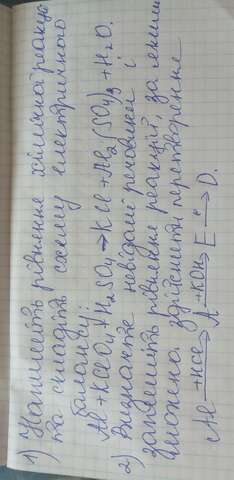 1) Напишіть рівняння хімічна реакція
та складіть схему електричного
балансу:
Al + KClO4 + H2SO4 → KCl + Al2(SO4)3 + H2O.
2) Визначте невідомі речовини і
запишіть рівняння реакцій, за якими
можна здійснити перетворення
Al +HCl→ A +KOH→ E t°→ D.